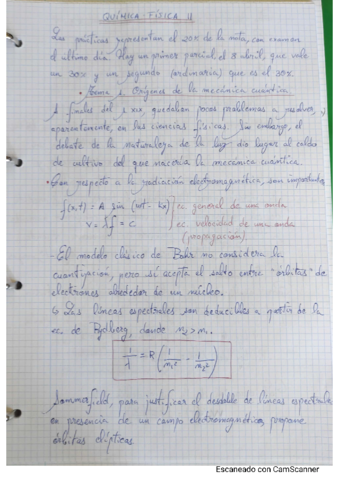 QUÍMICA-FÍSICA II
Las prácticas representan el 20% de la nota, con examen
el último día. Hay un primer parcial el 8 abril, que vale
un 30% y un segundo (ordinaria) que es el 30%.
Tema 1. Orígenes de la mecánica cuántica.
A finales del s XIX, quedaban pocos problemas a resolver,
aparentemente, en las ciencias físicas. Sin embargo, el
debate de la naturaleza de la luz dio lugar al caldo
de cultivo del que nacería la mecánica cuántica.
Con respecto a la radiación electromagnética, son importantes
f(x,t) = A sin (wt - kx) ec general de una onda
v = λf = c ec. velocidad de una onda
(propagación).
- El modelo clásico de Bohr no considera la
cuantización, pero sí acepta el salto entre "órbitas" de
electrones alrededor de un núcleo.
↳ Las líneas espectrales son deducibles a partir de la
ec de Rydberg, donde n₂ > n₁.
1/λ = R (1/n₁² - 1/n₂²)
Sommerfield, para justificar el desdoble de líneas espectrales
en presencia de un campo electromagnético, propone
órbitas elípticas
Escaneado con CamScanner